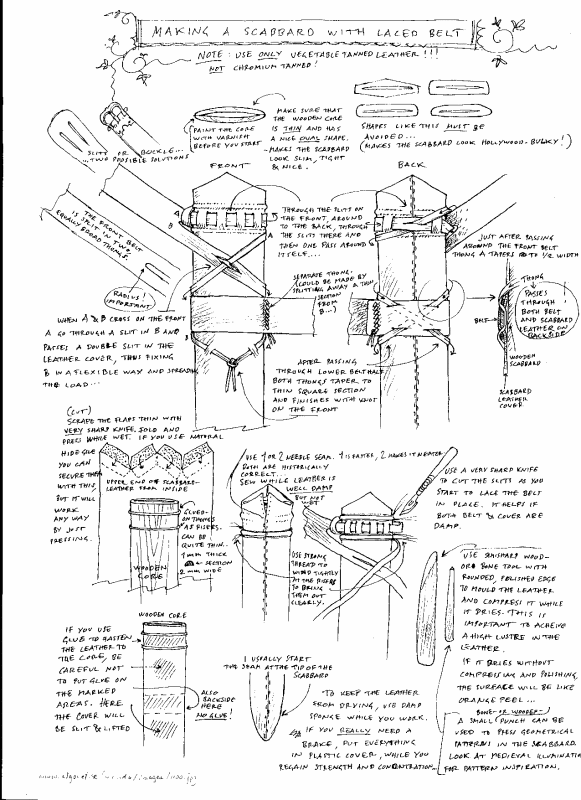 MAKING A SCABBARD WITH LACED BELT
NOTE: USE ONLY VEGETABLE TANNED LEATHER!!!
NOT CHROMIUM TANNED!
SLITS OR BUCKLE...
...TWO POSSIBLE SOLUTIONS
PAINT THE CORE
WITH VARNISH
BEFORE YOU START
MAKE SURE THAT
THE WOODEN CORE
IS THIN AND HAS
A NICE OVAL SHAPE.
-MAKES THE SCABBARD
LOOK SLIM, TIGHT
& NICE.
SHAPES LIKE THIS MUST BE
AVOIDED...
(MAKES THE SCABBARD LOOK HOLLYWOOD-BULKY!)
FRONT
BACK
THE FRONT BELT
IS SPLIT IN TWO
EQUALLY BROAD THONGS.
RADIUS!
IMPORTANT
A
B
A
B
THROUGH THE SLITS ON
THE FRONT, AROUND
TO THE BACK, THROUGH
THE SLITS THERE AND
THEN ONE PASS AROUND
ITSELF...
JUST AFTER PASSING
AROUND THE FRONT BELT
THONG A TAPERS TO 1/2 WIDTH
SEPARATE THONG.
(COULD BE MADE BY
SPLITTING AWAY A THIN
SECTION
FROM
B...)
THONG
PASSES
THROUGH
BOTH BELT
AND SCABBARD
LEATHER ON
BACKSIDE
BELT
WOODEN
SCABBARD
SCABBARD
LEATHER
COVER
WHEN A & B CROSS ON THE FRONT
A GO THROUGH A SLIT IN B AND
PASSES A DOUBLE SLIT IN THE
LEATHER COVER, THUS FIXING
B IN A FLEXIBLE WAY AND SPREADING
THE LOAD...
AFTER PASSING
THROUGH LOWER BELT HALF
BOTH THONGS TAPER TO
THIN SQUARE SECTION
AND FINISHES WITH KNOT
ON THE FRONT
(CUT)
SCRAPE THE FLAPS THIN WITH
VERY SHARP KNIFE, FOLD AND
PRESS WHILE WET. IF YOU USE NATURAL
HIDE GLUE
YOU CAN
SECURE THEM
WITH THIS,
BUT IT WILL
WORK
ANY WAY
BY JUST
PRESSING.
UPPER END OF SCABBARD-
LEATHER FROM INSIDE
GLUED-
ON THONGS
AS RISERS.
CAN BE
QUITE THIN...
1 MM THICK
SECTION
2 MM WIDE
WOODEN
CORE
USE 1 OR 2 NEEDLE SEAM. 1 IS FASTER, 2 MAKES IT NEATER.
BOTH ARE HISTORICALLY
CORRECT...
SEW WHILE LEATHER IS
WELL DAMP
BUT NOT
WET
USE STRONG
THREAD TO
WIND TIGHTLY
AT THE RISERS
TO BRING
THEM OUT
CLEARLY.
USE A VERY SHARP KNIFE
TO CUT THE SLITS AS YOU
START TO LACE THE BELT
IN PLACE. IT HELPS IF
BOTH BELT & COVER ARE
DAMP.
USE UNSHARP WOOD-
OR BONE TOOL WITH
ROUNDED, POLISHED EDGE
TO MOULD THE LEATHER
AND COMPRESS IT WHILE
IT DRIES. THIS IS
IMPORTANT TO ACHEIVE
A HIGH LUSTRE IN THE
LEATHER.
IF IT DRIES WITHOUT
COMPRESSING AND POLISHING,
THE SURFACE WILL BE LIKE
ORANGE PEEL...
BONE- OR WOODEN-
A SMALL PUNCH CAN BE
USED TO PRESS GEOMETRICAL
PATTERNS IN THE SCABBARD.
LOOK AT MEDIEVAL ILLUMINATI
FOR PATTERN INSPIRATION.
WOODEN CORE
IF YOU USE
GLUE TO FASTEN
THE LEATHER TO
THE CORE, BE
CAREFUL NOT
TO PUT GLUE ON
THE MARKED
AREAS. HERE
THE COVER WILL
BE SLIT & LIFTED
ALSO
BACKSIDE
HERE
NO GLUE!
I USUALLY START
THE SEAM AT THE TIP OF THE
SCABBARD
TO KEEP THE LEATHER
FROM DRYING, USE DAMP
SPONGE WHILE YOU WORK.
IF YOU REALLY NEED A
BRAKE, PUT EVERYTHING
IN PLASTIC COVER, WHILE YOU
REGAIN STRENGTH AND CONCENTRATION...